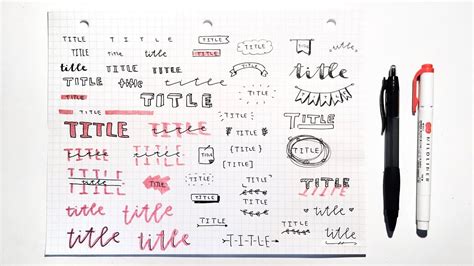 TITLE TITLE TITLE TITLE TITLE
TITLE TITLE title TITLE TITLE
title TITLE TITLE title TITLE title
TITLE title title title
TITLE TITLE
TITLE TITLE TITLE
TITLE TITLE TITLE {TITLE} TITLE
title TITLE TITLE [TITLE]
TITLE TITLE TITLE TITLE
title title TITLE TITLE title
title title -T-I-T-L-E- TITLE TITLE
MILDLINER